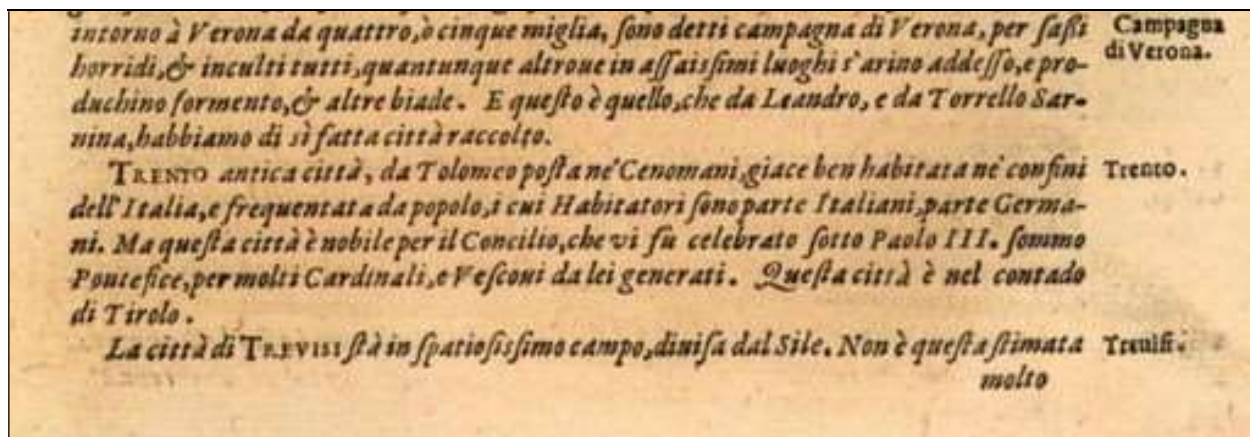 intorno à Verona da quattro, ò cinque miglia, ſono detti campagna di Verona, per ſaßi
Campagna
di Verona.
horridi, & inculti tutti, quantunque altroue in aſſaisſimi luoghi s'arino addeſſo, e pro-
duchino formento, & altre biade. E queſto è quello, che da Leandro, e da Torrello Sar-
nina, habbiamo di sì fatta città raccolto.
TRENTO antica città, da Tolomeo poſta ne' Cenomani, giace ben habitata ne' confini
Trento.
dell'Italia, e frequentata da popolo, i cui Habitatori ſono parte Italiani, parte Germa-
ni. Ma queſta città è nobile per il Concilio, che vi fu celebrato ſotto Paolo III. ſommo
Pontefice, per molti Cardinali, e Veſcoui da lei generati. Queſta città è nel contado
di Tirolo.
La città di TREVISI ſtà in ſpatioſisſimo campo, diuiſa dal Sile. Non è queſta ſtimata
Treuiſi.
molto